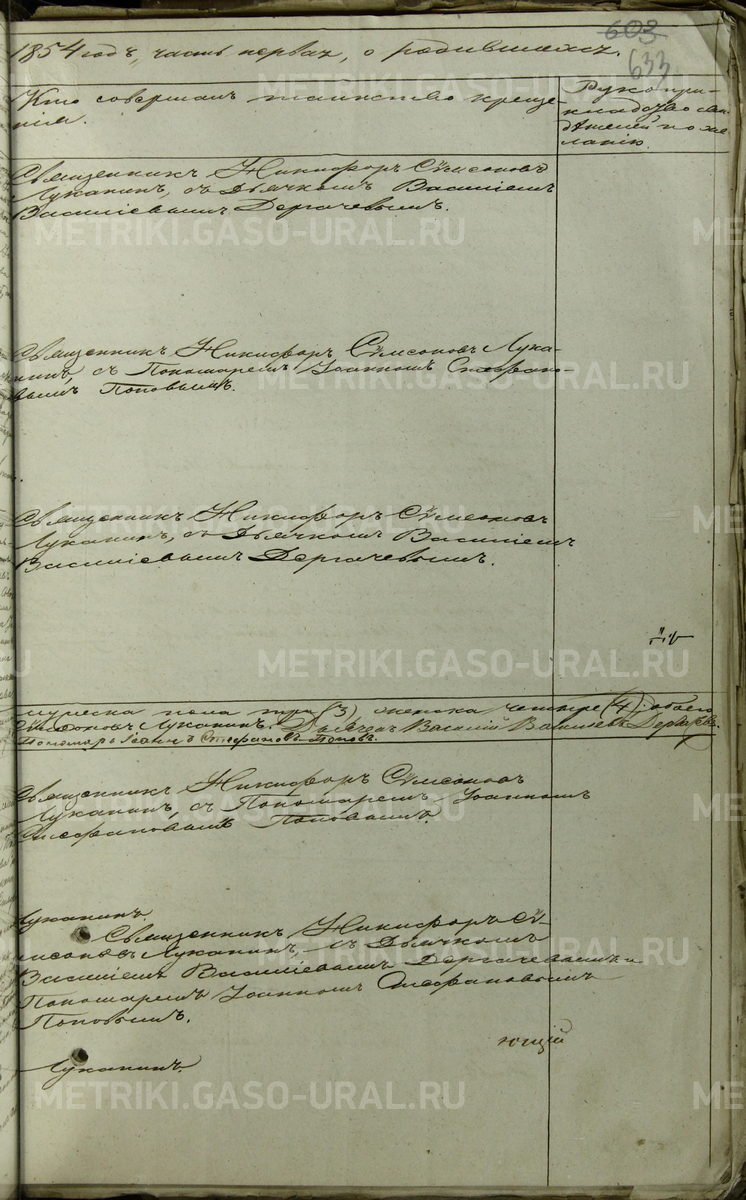 603
633.
1854 годъ, часть первая, о родившихся.
Кто совершалъ таинство креще-
нія.
Рукопри-
кладство сви-
дѣтелей по же-
ланію.
Священникъ Никифоръ Сѵмеоновъ
Луканинъ, съ Дьячкомъ Василіемъ
Василіевымъ Дергачевымъ.
METRIKI.GASO-URAL.RU
Священникъ Никифоръ Сѵмеоновъ Лука-
нинъ, съ Пономаремъ Іоанномъ Стефано-
вымъ Поповымъ.
METRIKI.GASO-URAL.RU
Священникъ Никифоръ Сѵмеоновъ
Луканинъ, съ Дьячкомъ Василіемъ
Василіевымъ Дергачевымъ.
METRIKI.GASO-URAL.RU
METRIKI.GASO-URAL.RU
мужеска пола три (3) женска четыре (4) обоего
Сѵмеоновъ Луканинъ. Дьячекъ Василій Васильевъ Дергачевъ.
Пономарь Іоаннъ Стефановъ Поповъ.
Священникъ Никифоръ Сѵмеоновъ
Луканинъ, съ Пономаремъ Іоанномъ
Стефановымъ Поповымъ.
METRIKI.GASO-URAL.RU
Луканинъ.
Священникъ Никифоръ Сѵ-
меоновъ Луканинъ, съ Дьячкомъ
Василіемъ Василіевымъ Дергачевымъ и
Пономаремъ Іоанномъ Стефановымъ
Поповымъ.
METRIKI.GASO-URAL.RU
ющій
Луканинъ.
METRIKI.GASO-URAL.RU